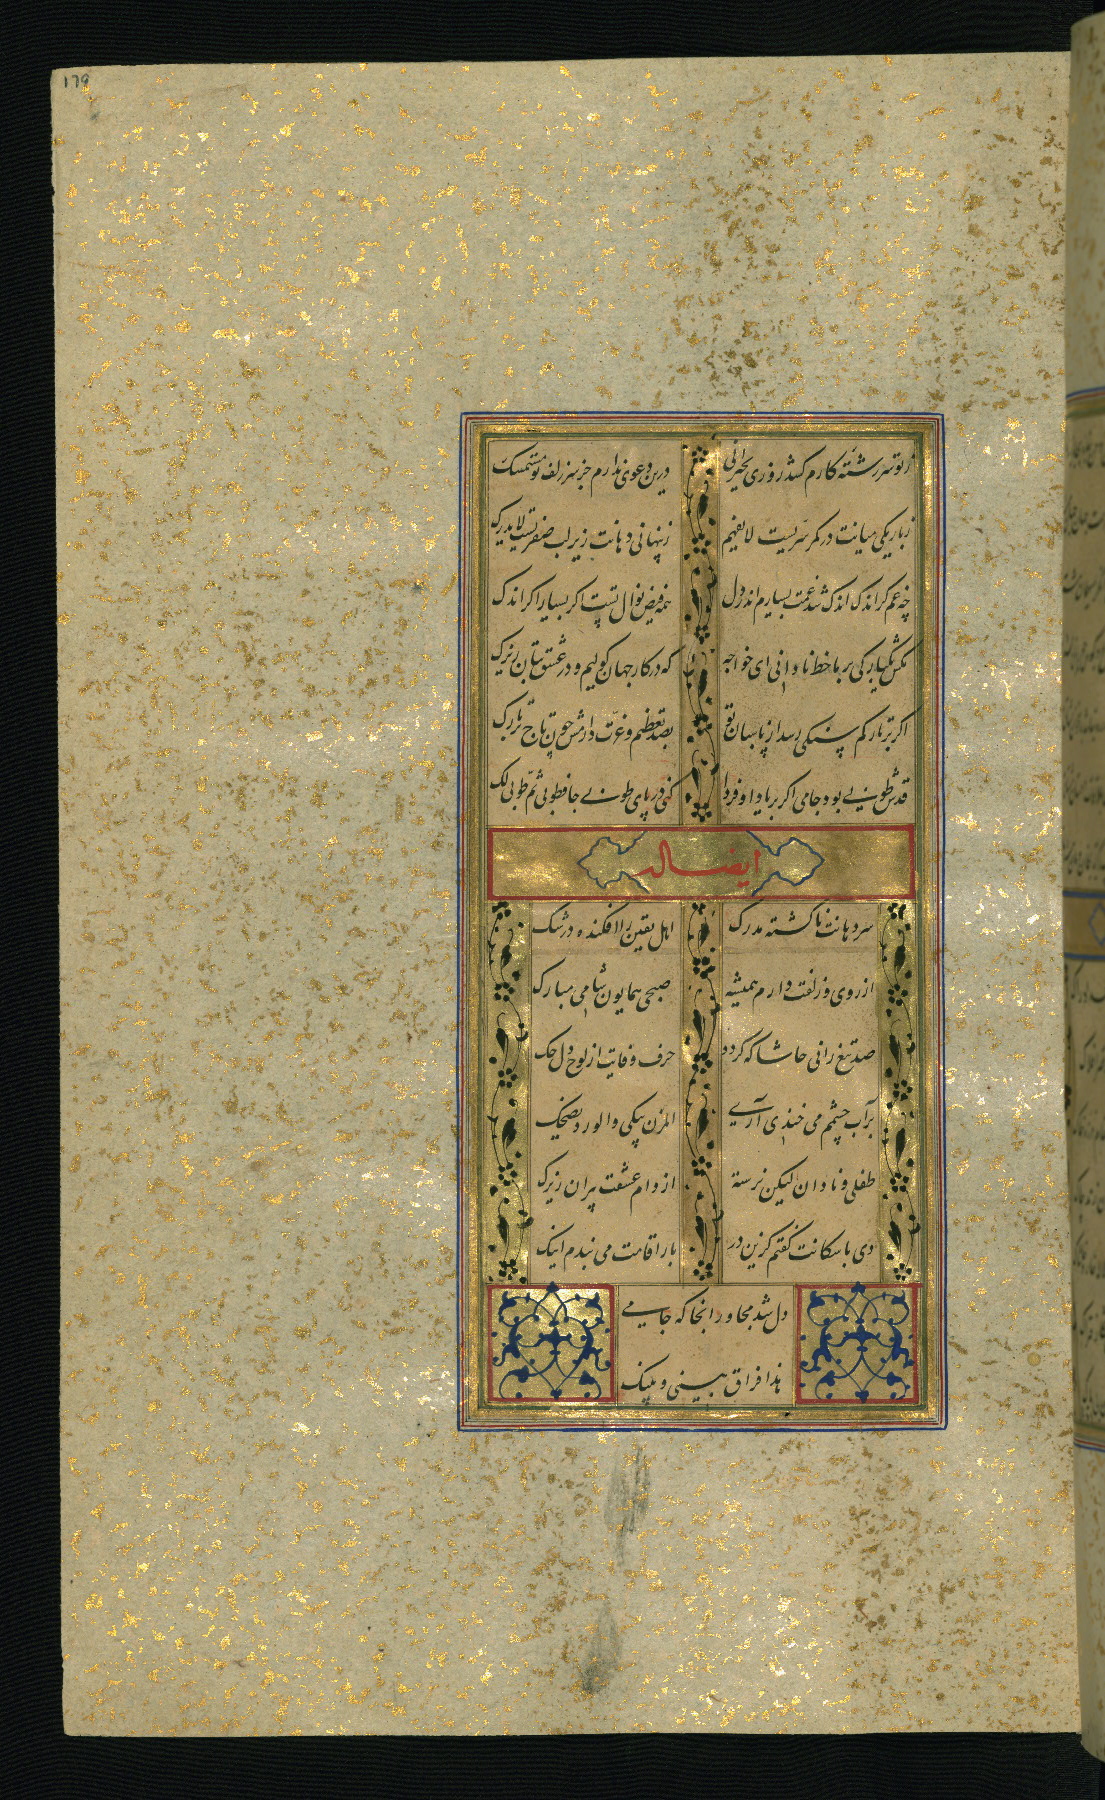 179
ز تو سررشته کارم کشد روزی بحیرانی
درین دعوی ندارم جز سر زلف تو مستمسک
ز باریکی میانت در کمر سریست لا یفهم
ز پنهانی دهانت زیر لب لا یدرک
چه غم کر اندک اندک شد غمت بسیارم اندر دل
همه فیض نوال تست اکر بسیار اکر اندک
مکش یکبارکی بر ما خط نادانی ای خواجه
که در کار جهان کولیم و در عشق بتان زیرک
اکر بر تارکم سنکی رسد از پاسبان تو
بصد تعظیم و عزت دارمش چون تاج بر تارک
قدش طوبی بود جامی اکر بر یاد او فردا
کنی در پای طوبی جا فطوبی ثم طوبی لک
ایضا له
سر دهانت ناکشته مدرک
اهل یقین را افکنده در شک
از روی و زلفت دارم همیشه
صبحی همایون شامی مبارک
صد تیغ رانی حاشا که کردد
حرف وفایت از لوح دل حک
بر آب چشمم می خندی آری
المزن یبکی والورد یضحک
طفلی و نادان لیکن نرسته
از دام عشقت پیران زیرک
دی با سکانت کفتم کزین در
بار اقامت می بندم اینک
دل شد مجاور انجا که جامی
هذا فراق بینی و بینک